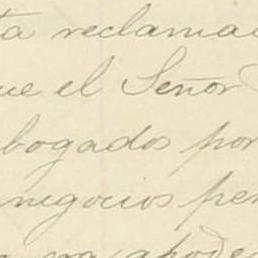 ta reclamac
ue el Señor
bogados por
negocios per
apode